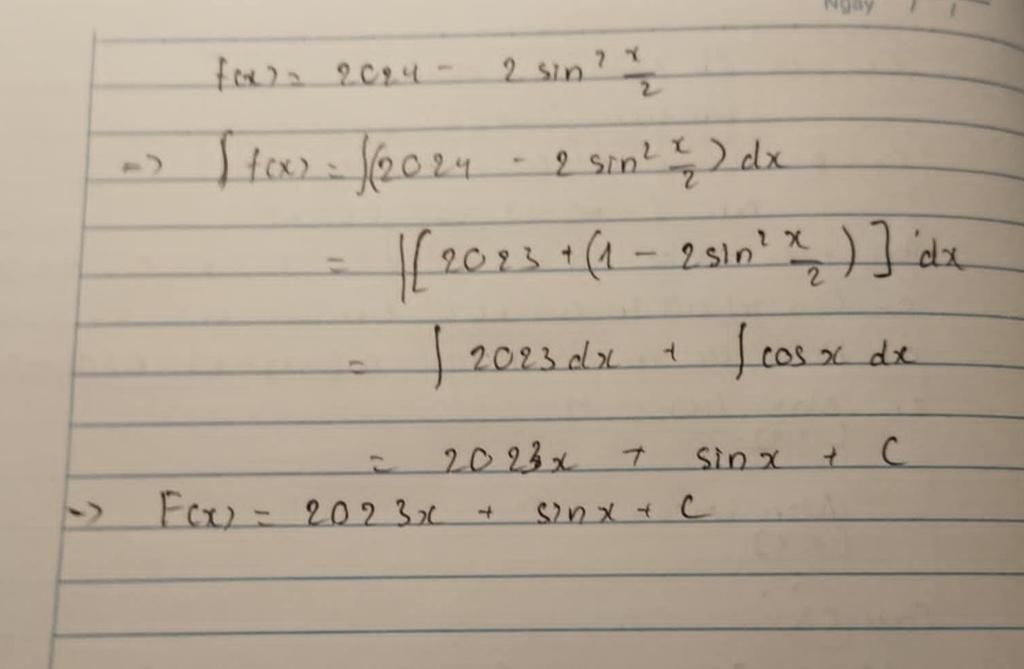 Ngày / /
f(x) = 2024 - 2 sin² x/2
=> ∫ f(x) = ∫(2024 - 2 sin² x/2) dx
= ∫[2023 + (1 - 2sin² x/2)] dx
= ∫ 2023 dx + ∫ cos x dx
= 2023x + sin x + C
=> F(x) = 2023x + sin x + C